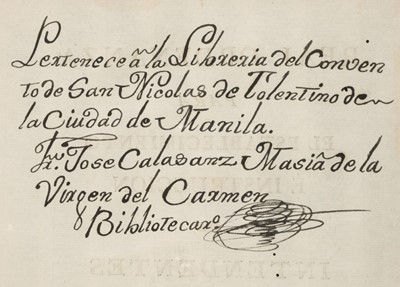 Pertenece â la Libreria del Conven
to de San Nicolas de Tolentino de
la Ciudad de Manila.
Fr. Jose Calasanz Masiâ de la
Virgen del Carmen
Bibliotecaro.